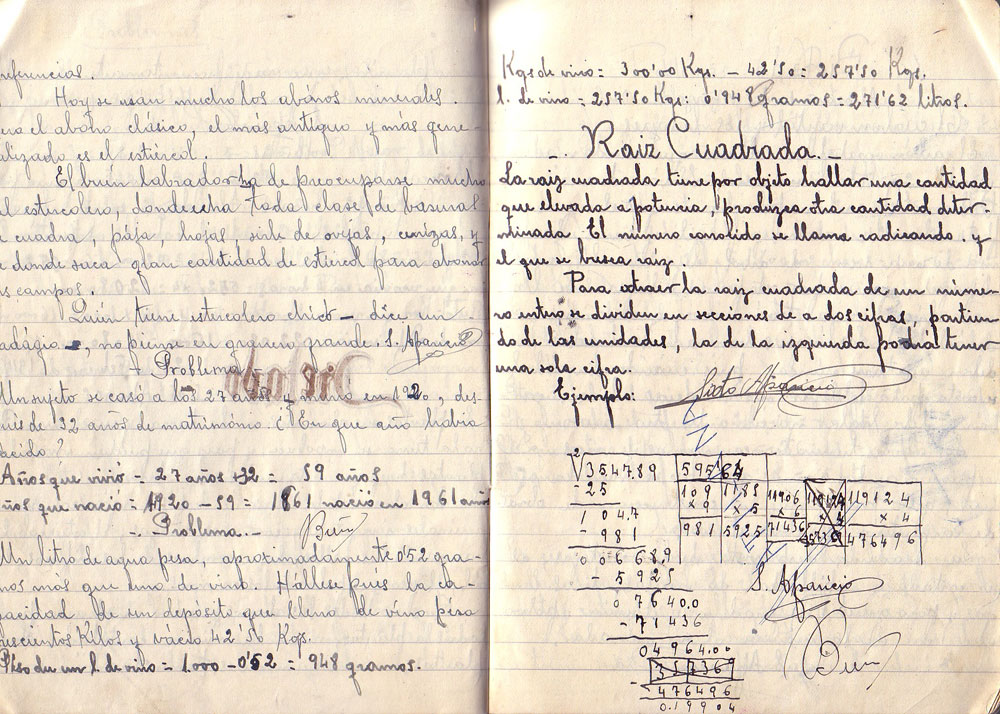 nferencias.
Hoy se usan mucho los abonos minerales.
ero el abono clásico, el más antiguo y más gene-
alizado es el estiércol.
El buén labrador ha de preocuparse mucho
el estercolero, donde echa toda clase de basuras
e cuadra, pája, hojas, sirle de ovejas, cenizas, y
e donde saca gran cantidad de estiércol para abonar
us campos.
Quién tiene estercolero chico - dice un
adágio -, no piense en granero grande. S. Aparicio
- Problema
Dictado
Un sujeto se casó a los 27 años y murió en 1920, des-
ués de 32 años de matrimónio. ¿En que año había
acido?
Años que vivió = 27 años + 32 = 59 años
años que nació = 1920 - 59 = 1861 nació en 1961 años
-. Problema.-
Bien
Un litro de agua pesa, aproximadamente 0'52 gra-
mos más que uno de vino. Hállese pués la ca-
pacidad de un depósito que lleno de vino pesa
rescientos Kilos y vacio 42'50 Kgs.
Péso de un l. de vino = 1.000 - 0'52 = 948 gramos.
Kgs de vino = 300'00 Kgs. - 42'50 = 257'50 Kgs.
l. de vino = 257'50 Kgs: 0'948 gramos = 271'62 litros.
-. Raiz Cuadrada.-
La raiz cuadrada tiene por objeto hallar una cantidad
que elevada a potencia, produzca otra cantidad deter-
minada. El número conocido se llama radicando. y
el que se busca raiz.
Para extraer la raiz cuadrada de un núme-
ro entero se dividen en secciones de a dos cifras, partien-
do de las unidades, la de la izquierda podrá tener
una sola cifra.
Ejemplo: Sixto Aparicio
2√354789 595'64
-25 109 1185 11906 119124
x 9 x 5 x 6 x 4
1 04.7 981 5925 71436 476496
- 981
0 0 6 6 8.9
- 5 9 2 5
S. Aparicio
0 7 6 4 0.0
- 7 1 4 3 6
0 4 9 6 4.0 0
Bien
- 4 7 6 4 9 6
0.1 9 9 0 4